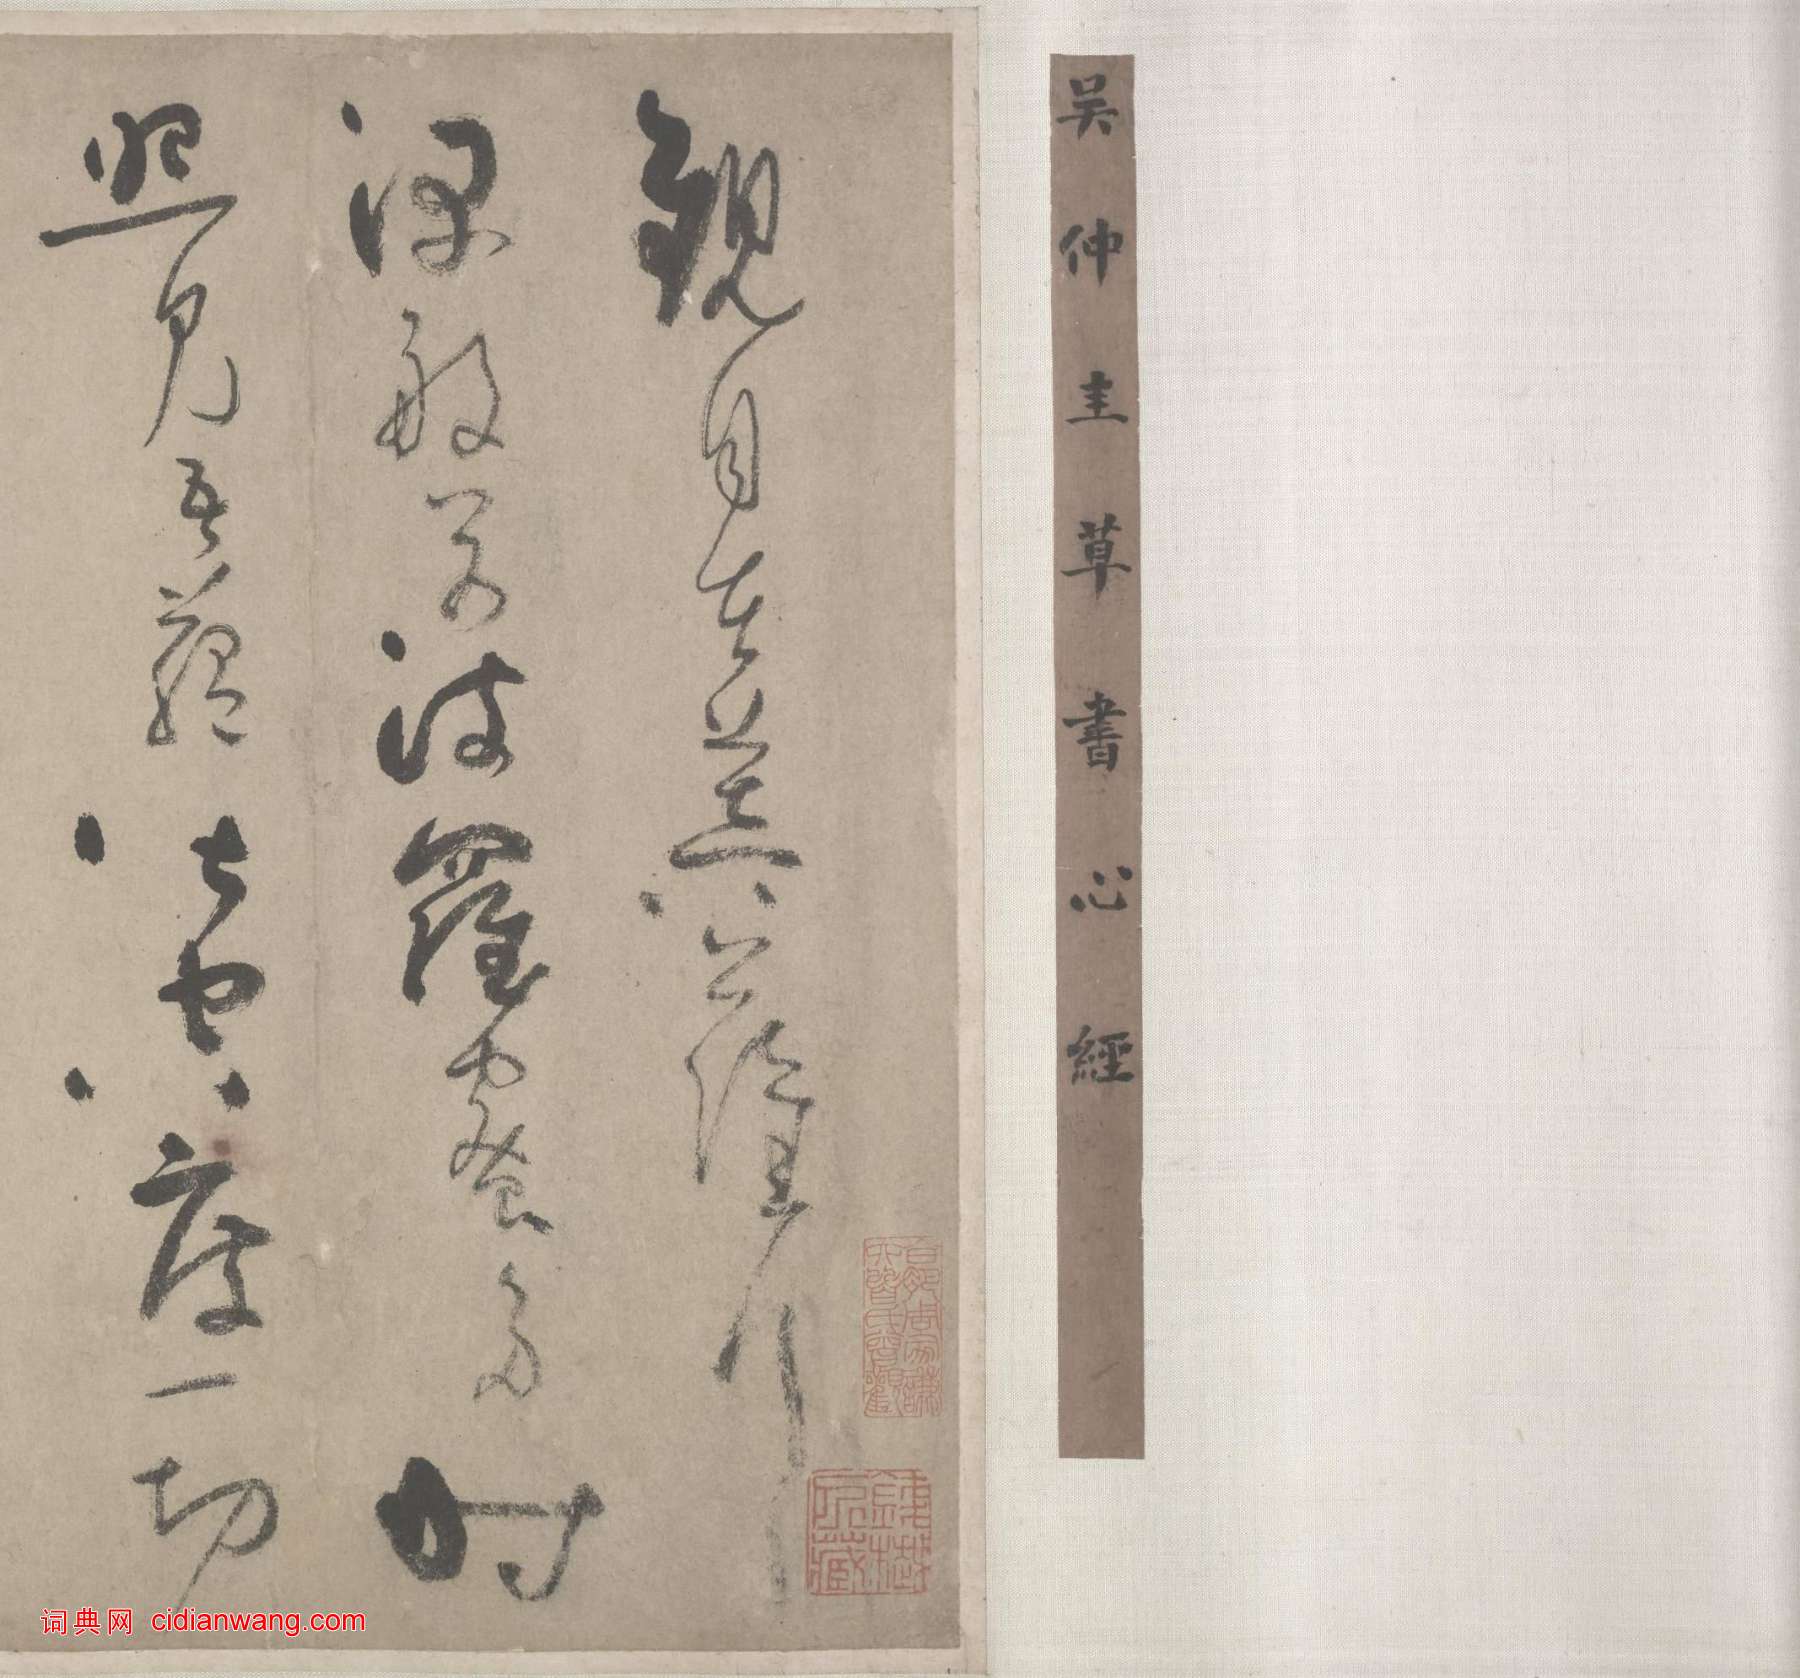 吴仲圭草書心經
觀自在菩薩行
深般若波羅蜜多時
照見五蘊皆空度一切
詞典网 cidianwang.com